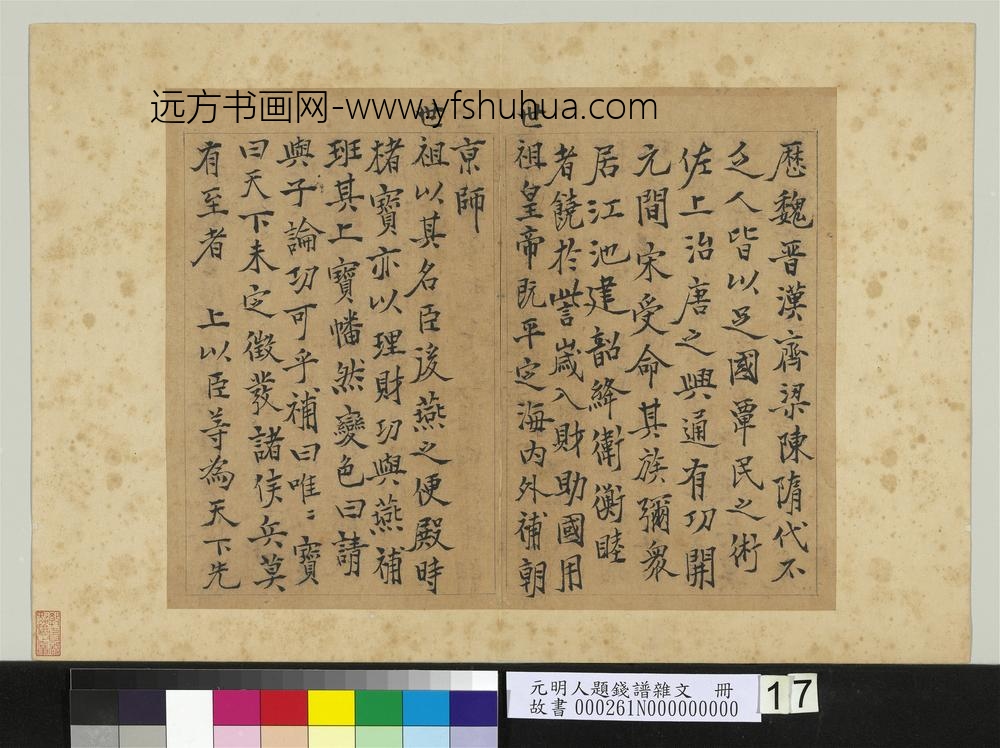 远方书画网-www.yfshuhua.com
歷魏晉漢齊梁陳隋代不
乏人皆以足國覃民之術
佐上治唐之興通有功開
元間宋受命其族彌衆
居江池建韶絳衛衡睦
者饒於訾歲入財助國用
世祖皇帝既平定海内外補朝
京師
世祖以其名臣後燕之便殿時
楮寶亦以理財功與燕補
班其上寶幡然變色曰請
與子論功可乎補曰唯〻寶
曰天下未定徵發諸侯兵莫
有至者 上以臣等為天下先
元明人題錢譜雜文 冊
故書 000261N000000000
17